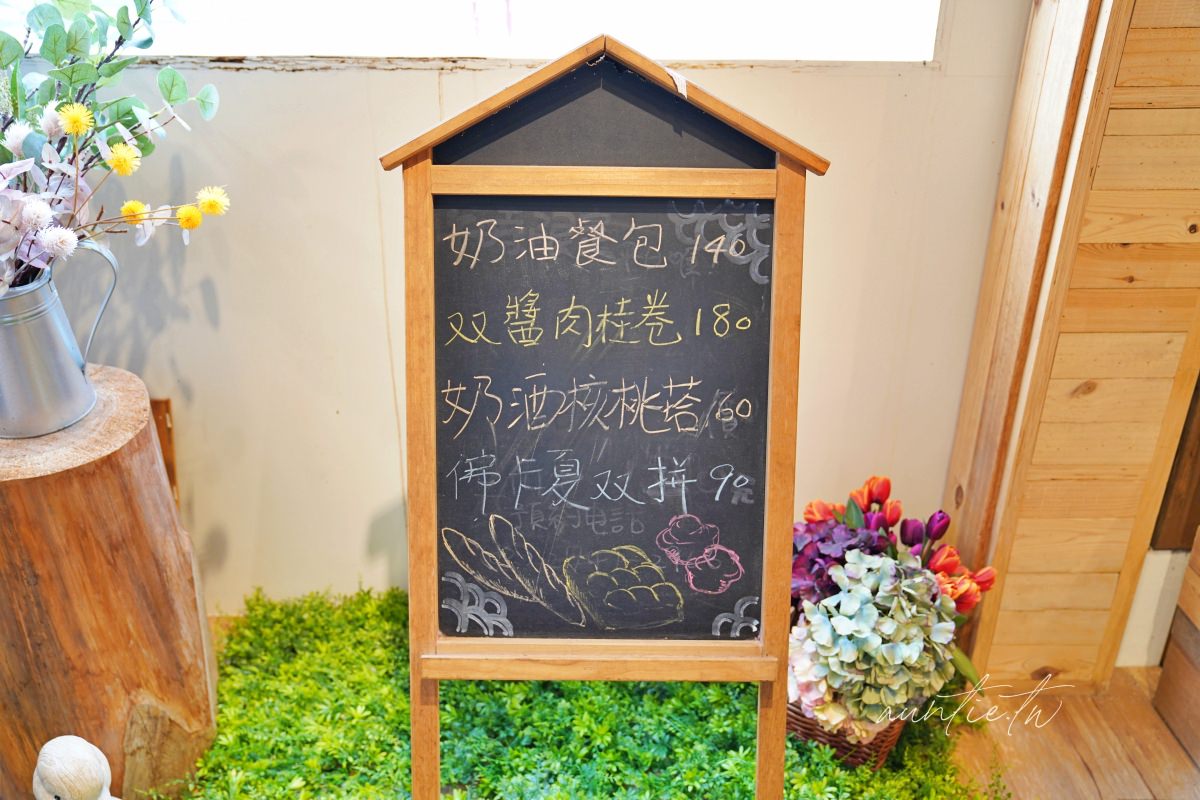 奶油餐包 140
双醬肉桂卷 180
奶酒核桃塔 160
佛卡夏双拼 90
預約電話
auntie.tw